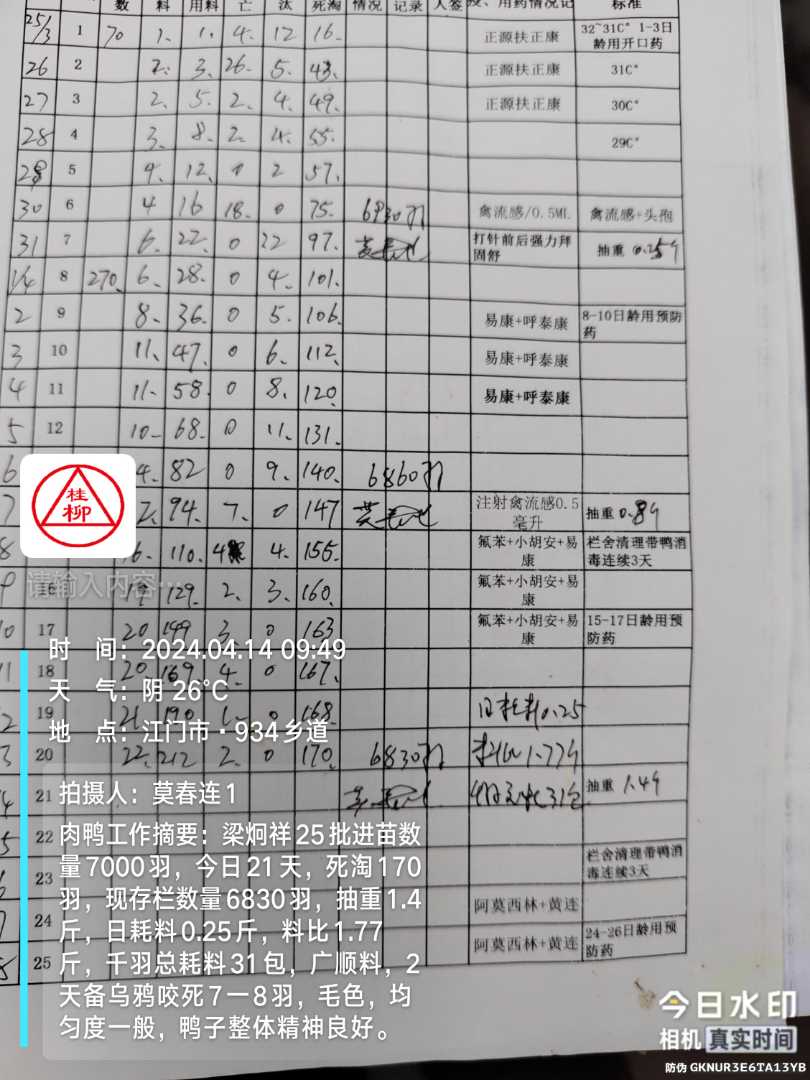 料 用料 亡 汰 死淘 情况 记录 人签 投、用药情况记 标准
25/3 1 70 1. 1. 4. 12 16. 正源扶正康 32~31C° 1-3日龄用开口药
26 2 2. 3. 26. 5. 43. 正源扶正康 31C°
27 3 2. 5. 2. 4. 49. 正源扶正康 30C°
28 4 3. 8. 2. 4. 55. 29C°
5 4. 12. 0 2 57.
30 6 4 16 18. 0 75. 6930羽 禽流感/0.5ML 禽流感+头孢
31 7 6. 22. 0 22 97. 打针前后强力拜固舒 抽重 0.25斤
1/4 8 270. 6. 28. 0 4. 101.
2 9 8. 36. 0 5. 106. 易康+呼泰康 8-10日龄用预防药
3 10 11. 47. 0 6. 112. 易康+呼泰康
4 11 11. 58. 0 8. 120. 易康+呼泰康
5 12 10. 68. 0 11. 131.
6 4. 82 0 9. 140. 6860羽
7 2. 94. 7. 0 147 注射禽流感0.5毫升 抽重 0.8斤
8 16. 110. 4 4. 155. 氟苯+小胡安+易康 栏舍清理带鸭消毒连续3天
9 16 19. 129. 2. 3. 160. 氟苯+小胡安+易康
10 17 20 149 3. 0 163 氟苯+小胡安+易康 15-17日龄用预防药
11 18 20. 169 4. 0 167.
2 19 21. 190. 1. 0 168. 日耗料0.25
3 20 22. 212 2. 0 170. 6830羽 料比1.77斤
21 抽重 1.4斤
22
23 栏舍清理带鸭消毒连续3天
24 阿莫西林+黄连
25 阿莫西林+黄连 24-26日龄用预防药
桂柳
请输入内容…
时 间：2024.04.14 09:49
天 气：阴 26°C
地 点：江门市·934乡道
拍摄人：莫春连1
肉鸭工作摘要：梁炯祥25批进苗数
量7000羽，今日21天，死淘170
羽，现存栏数量6830羽，抽重1.4
斤，日耗料0.25斤，料比1.77
斤，千羽总耗料31包，广顺料，2
天备乌鸦咬死7一8羽，毛色，均
匀度一般，鸭子整体精神良好。
今日水印
相机 真实时间
防伪 GKNUR3E6TA13YB